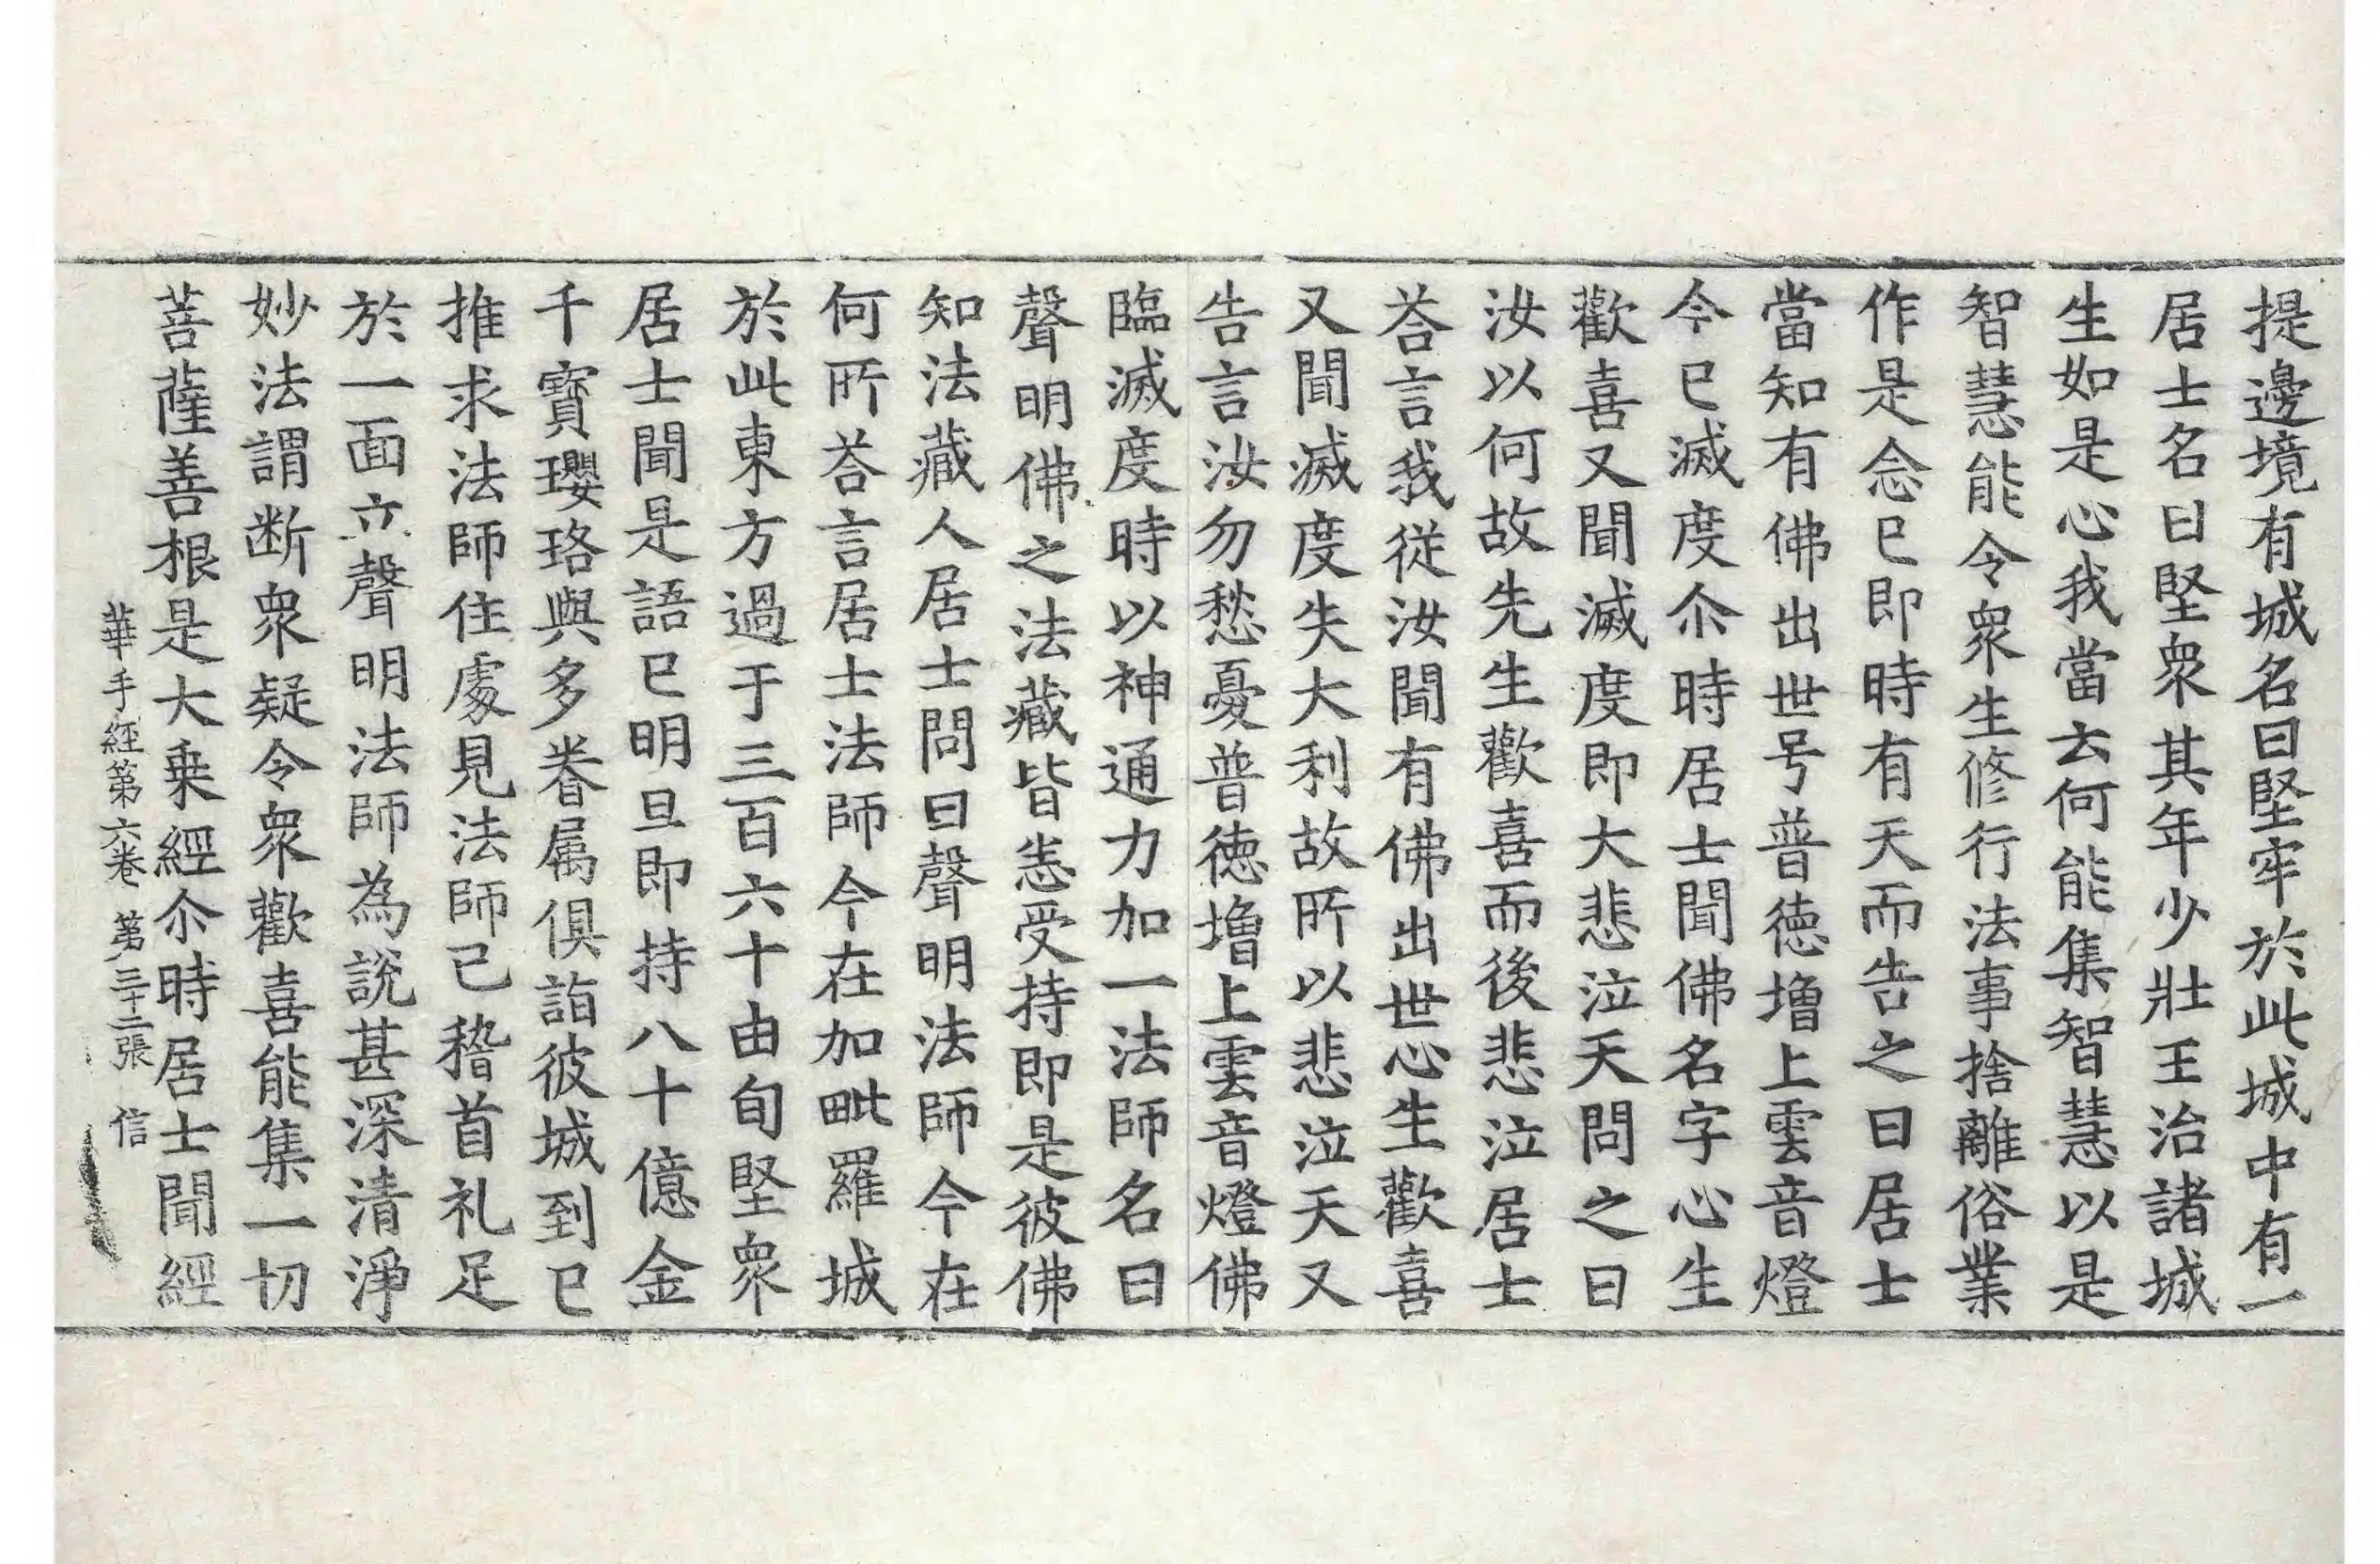 提邊境有城名曰堅牢於此城中有一
居士名曰堅衆其年少壯王治諸城
生如是心我當云何能集智慧以是
智慧能令衆生修行法事捨離俗業
作是念已即時有天而告之曰居士
當知有佛出世号普徳増上雲音燈
今已滅度尒時居士聞佛名字心生
歡喜又聞滅度即大悲泣天問之曰
汝以何故先生歡喜而後悲泣居士
荅言我從汝聞有佛出世心生歡喜
又聞滅度失大利故所以悲泣天又
告言汝勿愁憂普徳増上雲音燈佛
臨滅度時以神通力加一法師名曰
聲明佛之法藏皆悉受持即是彼佛
知法藏人居士問曰聲明法師今在
何所荅言居士法師今在加毗羅城
於此東方過于三百六十由旬堅衆
居士聞是語已明旦即持八十億金
千寶瓔珞與多眷屬俱詣彼城到已
推求法師住處見法師已稽首礼足
於一面立聲明法師為説甚深清淨
妙法謂断衆疑令衆歡喜能集一切
菩薩善根是大乗經尒時居士聞經
華手經第六卷 第三十二張 信